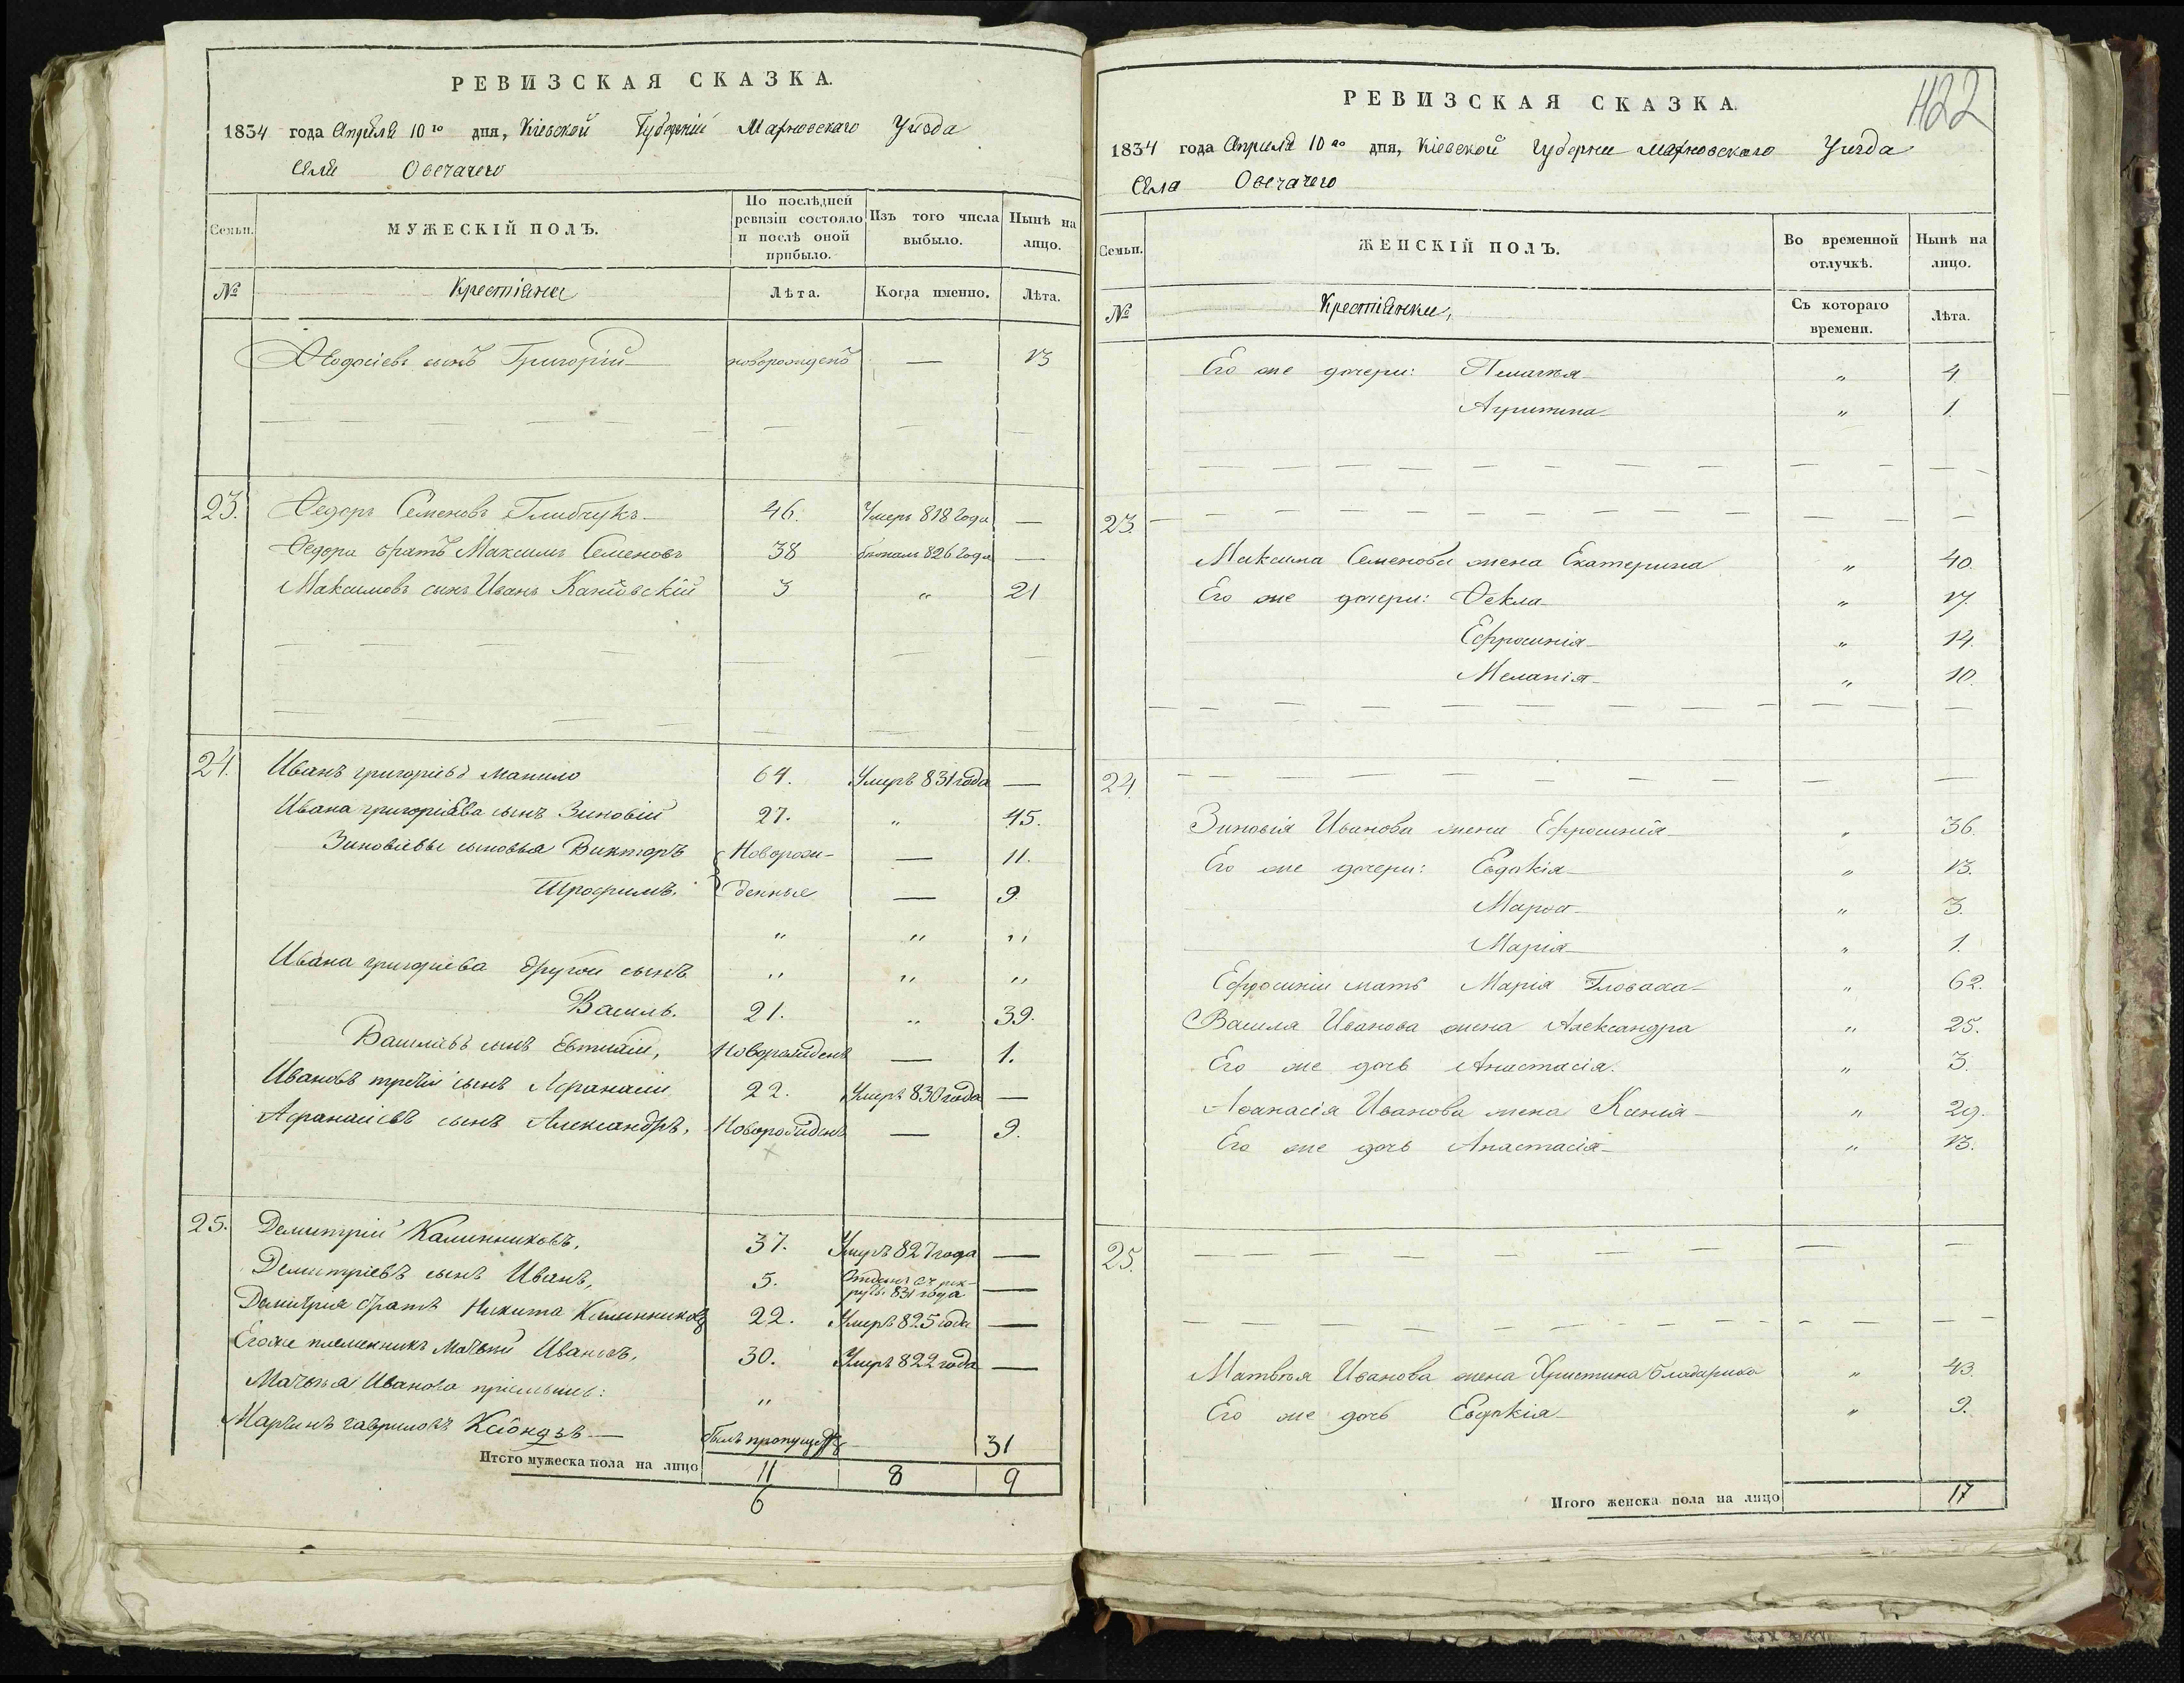 РЕВИЗСКАЯ СКАЗКА.
1834 года Апреля 10го дня, Кіевской Губерніи Махновскаго Уезда
Села Овечачего
Семьи.
МУЖЕСКІЙ ПОЛЪ.
По послѣдней ревизіи состояло и послѣ оной прибыло.
Изъ того числа выбыло.
Нынѣ на лицо.
№
Крестіяне
Лѣта.
Когда именно.
Лѣта.
Ѳеодосіевъ сынъ Григорій новорожденъ — 13
23. Ѳедоръ Семеновъ 46. Умеръ 818 года —
Ѳедора братъ Максимъ Семеновъ 38 826 года —
Максимовъ сынъ Иванъ 3 " 21
24. Иванъ григоріевъ Манило 64. Умеръ 831 года —
Ивана григоріева сынъ Зиновій 27. " 45.
Зиновіевы сыновья Викторъ Новорож- — 11.
Трофимъ. денные — 9.
" " "
Ивана григоріева другой сынъ " " "
Василь. 21. " 39.
Василіевъ сынъ Евтихій, Новорожденъ — 1.
Ивановъ третій сынъ Афанасій 22. Умеръ 830 года —
Афанасіевъ сынъ Александръ, Новорожденъ — 9.
25. Демитрій Калинниковъ, 37. Умеръ 827 года —
Демитріевъ сынъ Иванъ, 5. Отданъ въ рек-
руты 831 года —
Демитрія братъ Никита Калинниковъ 22. Умеръ 825 года —
Егоже племенникъ Матвѣй Ивановъ, 30. Умеръ 822 года —
Матвѣя Иванова пріемышъ: "
Мартинъ гавриловъ Ксіондзъ — былъ пропущенъ 31
Итого мужеска пола на лицо 11 8 9
6
422
РЕВИЗСКАЯ СКАЗКА.
1834 года Апреля 10го дня, Кіевской Губерніи Махновскаго Уезда
Села Овечачего
Семьи.
ЖЕНСКІЙ ПОЛЪ.
Во временной отлучкѣ.
Нынѣ на лицо.
№
Крестіянки,
Съ котораго времени.
Лѣта.
Его же дочери: Пелагея " 4.
Агрипина " 1.
23.
Максима Семенова жена Екатерина " 40.
Его же дочери: Ѳекла " 17.
Ефросинія " 14.
Меланія " 10.
24.
Зиновія Иванова жена Ефросинія " 36.
Его же дочери: Евдокія " 13.
Марѳа " 3.
Марія " 1.
Ефросиніи мать Марія " 62.
Василя Иванова жена Александра " 25.
Его же дочь Анастасія. " 3.
Аѳанасія Иванова жена Ксенія " 29.
Его же дочь Анастасія " 13.
25.
Матвѣя Иванова жена Христина " 43.
Его же дочь Евдокія " 9.
Итого женска пола на лицо 17